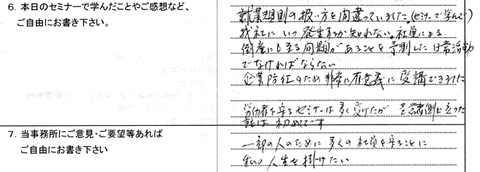 6. 本日のセミナーで学んだことやご感想など、
ご自由にお書き下さい。
就業規則の扱い方を間違っていました。(セミナーで学んで)
我社にいつ発生するか知れない。社員による
倒産にも至る問題があることを予測した日常活動
でなければならない
企業防衛のため非常に有意義に受講できました
労働者を守るセミナーは多く受けたが 経営者側に立った
話は初めてです
7. 当事務所にご意見・ご要望等あれば
ご自由にお書き下さい
一部の人のために多くの社員を守ることに
私の人生を掛けたい